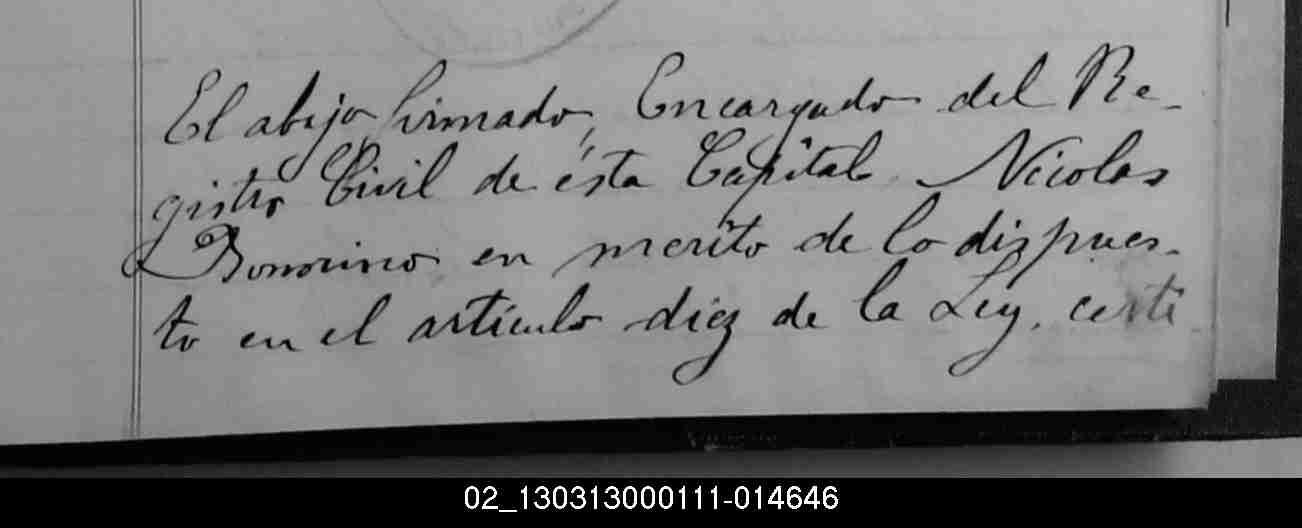 El abajo firmado, Encargado del Re-
gistro Civil de ésta Capital Nicolas
Bonorino en merito de lo dispues-
to en el artículo diez de la Ley, certi
02_130313000111-014646